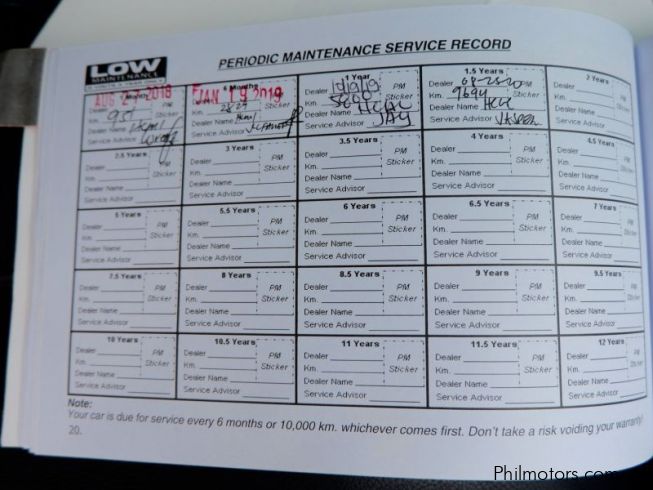 LOW
MAINTENANCE
PERIODIC MAINTENANCE SERVICE RECORD
AUG 27 2018
Km. 951
PM
Dealer Name
Service Advisor
6 Months
JAN 19 2019
Km.
Sticker
Dealer Name
Service Advisor
1 Year
Dealer
PM
Km.
Sticker
Dealer Name
Service Advisor JAY
1.5 Years
Dealer
PM
Km. 9694
Sticker
Dealer Name
Service Advisor
2 Years
Dealer
PM
Km.
Sticker
Dealer Name
Service Advisor
2.5 Years
Dealer
PM
Km.
Sticker
Dealer Name
Service Advisor
3 Years
Dealer
PM
Km.
Sticker
Dealer Name
Service Advisor
3.5 Years
Dealer
PM
Km.
Sticker
Dealer Name
Service Advisor
4 Years
Dealer
PM
Km.
Sticker
Dealer Name
Service Advisor
4.5 Years
Dealer
PM
Km.
Sticker
Dealer Name
Service Advisor
5 Years
Dealer
PM
Km.
Sticker
Dealer Name
Service Advisor
5.5 Years
Dealer
PM
Km.
Sticker
Dealer Name
Service Advisor
6 Years
Dealer
PM
Km.
Sticker
Dealer Name
Service Advisor
6.5 Years
Dealer
PM
Km.
Sticker
Dealer Name
Service Advisor
7 Years
Dealer
PM
Km.
Sticker
Dealer Name
Service Advisor
7.5 Years
Dealer
PM
Km.
Sticker
Dealer Name
Service Advisor
8 Years
Dealer
PM
Km.
Sticker
Dealer Name
Service Advisor
8.5 Years
Dealer
PM
Km.
Sticker
Dealer Name
Service Advisor
9 Years
Dealer
PM
Km.
Sticker
Dealer Name
Service Advisor
9.5 Years
Dealer
PM
Km.
Sticker
Dealer Name
Service Advisor
10 Years
Dealer
PM
Km.
Sticker
Dealer Name
Service Advisor
10.5 Years
Dealer
PM
Km.
Sticker
Dealer Name
Service Advisor
11 Years
Dealer
PM
Km.
Sticker
Dealer Name
Service Advisor
11.5 Years
Dealer
PM
Km.
Sticker
Dealer Name
Service Advisor
12 Years
Dealer
PM
Km.
Sticker
Dealer Name
Service Advisor
Note:
Your car is due for service every 6 months or 10,000 km. whichever comes first. Don't take a risk voiding your warranty!
20.
Philmotors.com